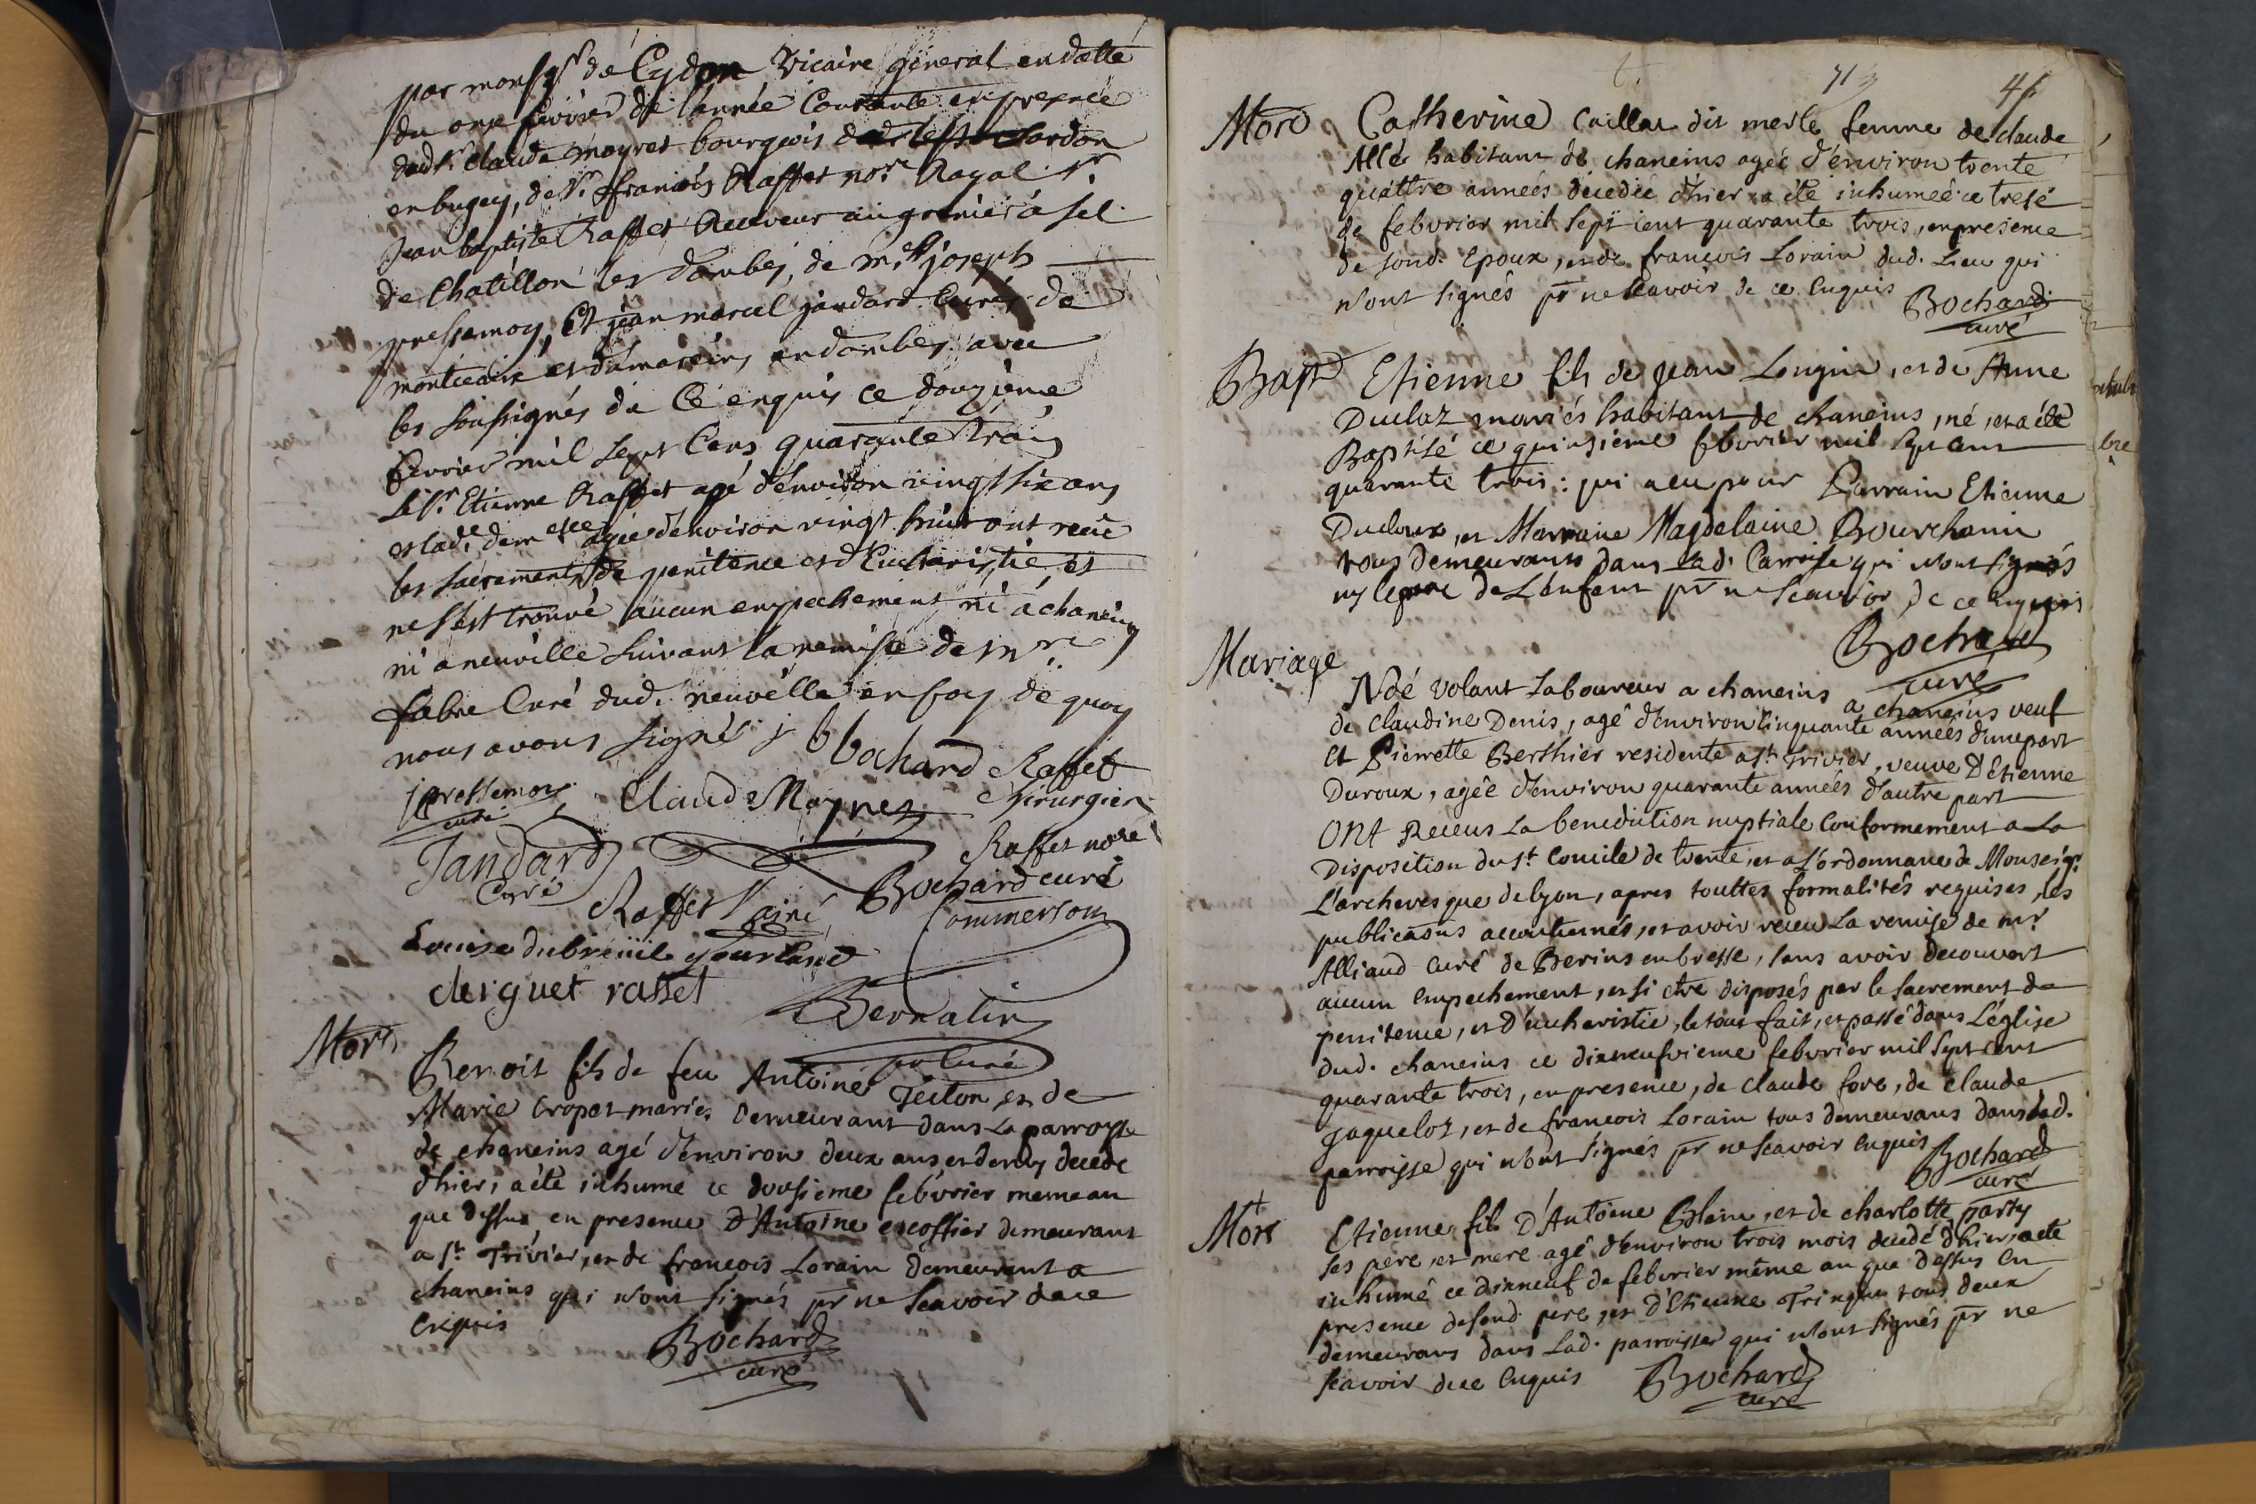 par monsgr de Cydon Vicaire général en datte
du onze fevrier de l'année Courante en presence
dud sr. claude moyret bourgeois de Cordon
en bugey, de sr. ffrançois Raffet nore. Royal sr.
Jean baptiste Raffet Receveur au grenier à sel
de Chatillon les dombes, de mre joseph
pressemoy, Et jean marcel jandard Curés de
montceaux et d'amareins en dombes avec
les soussignés de Ce enquis ce douzième
fevrier mil sept Cens quarante trois
Le sr. Etienne Raffet agé d'environ vingt six ans
et lade. demelle agée denviron vingt huit ont receu
les sacrements de penitence et d'Eucharistie, et
ne s'est trouvé aucun empechement ni à chaneins
ni a neuville suivant la remise de mre.
fabre Curé dud. neuvelle en foy de quoy
nous avons signé
bochard Raffet
Chirurgien
pressemoy
curé
Claude Moyret
Raffet nore
Jandard
Curé
Bochard curé
Raffet l'ainé
Commerson
Louise dubreüil
clerguet raffet
Bernalin
curé
Mort
Benoit fils de feu Antoine Teiton, et de
Marie Cropet mariés demeurant dans la parroisse
de chaneins agé d'environ deux ans et demy decedé
d'hier, a été inhumé ce dousieme febvrier meme an
que dessus en presence D'Antoine escoffier demeurant
a St. Trivier, et de francois Lorain demeurant a
chaneins qui n'ont signés pr ne scavoir de ce
Enquis
Bochard
curé
71
Mort
Catherine Caillat dit merle femme de claude
Allé habitant de chaneins agée d'environ trente
quattre années decedée d'hier a été inhumeé ce tresé
de febvrier mil sept cent quarante trois, en presence
de sond. Epoux, et de francois Lorain dud. Lieu qui
n'ont signés pr ne scavoir de ce Enquis
Bochard
curé
Bapt
Etienne fils de jean Longin, et de Anne
Duclaz mariés habitant de chaneins, né, et a été
Baptisé ce quinsieme febvrier mil sept cent
quarante trois: qui a eu pour Parrain Etienne
Ducloux, et Marraine Magdelaine Bourchanin
tous demeurants dans lad. Parroisse qui n'ont signés
ny le pere de L'enfant pr ne scavoir de ce enquis
Bochard
curé
Mariage
Noé Volant Laboureur a chaneins
a chaneins veuf
de Claudine Denis, agé d'environ cinquante années d'une part
Et Pierrette Berthier residente a St. Trivier, veuve D'Etienne
Duroux, agée d'environ quarante années d'autre part
ONt Receus La benediction nuptiale Conformement a La
Disposition du St. Concile de trente, et a l'ordonnance de Monseigr.
L'archevesque de lyon, apres touttes formalités requises, les
publicaõns accoutumés, et avoir receu La remise de mr.
Alliaud Curé de Berins en bresse, sans avoir decouvert
aucun Empechement, et si etre disposés par le sacrement de
penitence, et d'eucharistie, le tout fait, et passé dans L'eglise
dud. chaneins ce dixneufvieme febvrier mil sept cent
quarante trois, en presence, de claude fore, de claude
jaqueloz, et de francois Lorain tous demeurans dans lad.
parroisse qui n'ont signés pr ne scavoir Enquis
Bochard
curé
Mort
Etienne fils D'Antoine Blain, et de charlotte party
ses pere, et mere agé d'environ trois mois decedé d'hier, a eté
inhumé ce dixneuf de febvrier même an que dessus en
presence de sond. pere, et D'Etienne Tringue tous deux
demeurans dans Lad. parroisse qui n'ont signés pr ne
scavoir de ce Enquis
Bochard
curé